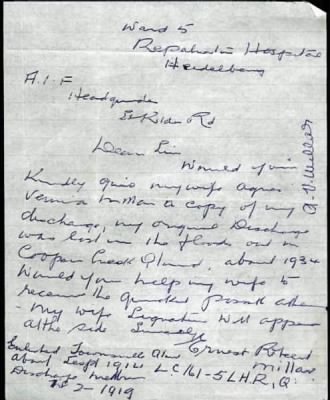 Ward 5
Repatriation Hospital
Heidelberg
A.I.F
Headquarters
St Kilda Rd
Dear Sir
Would you
Kindly give my wife Agnes
Millar a copy of my
discharge, my original Discharge
was lost in the floods out in
Cooper Creek Qland. about 1934
Would you help my wife to
receive the quickest possible
- My wife Signature will appear
at the side Sincerely
Ernest Robert
Millar
Enlisted Townsville Qld
about Sept 1914 LC 161-5 LHR, Q.
Discharge
2-1919
A. V. Millar